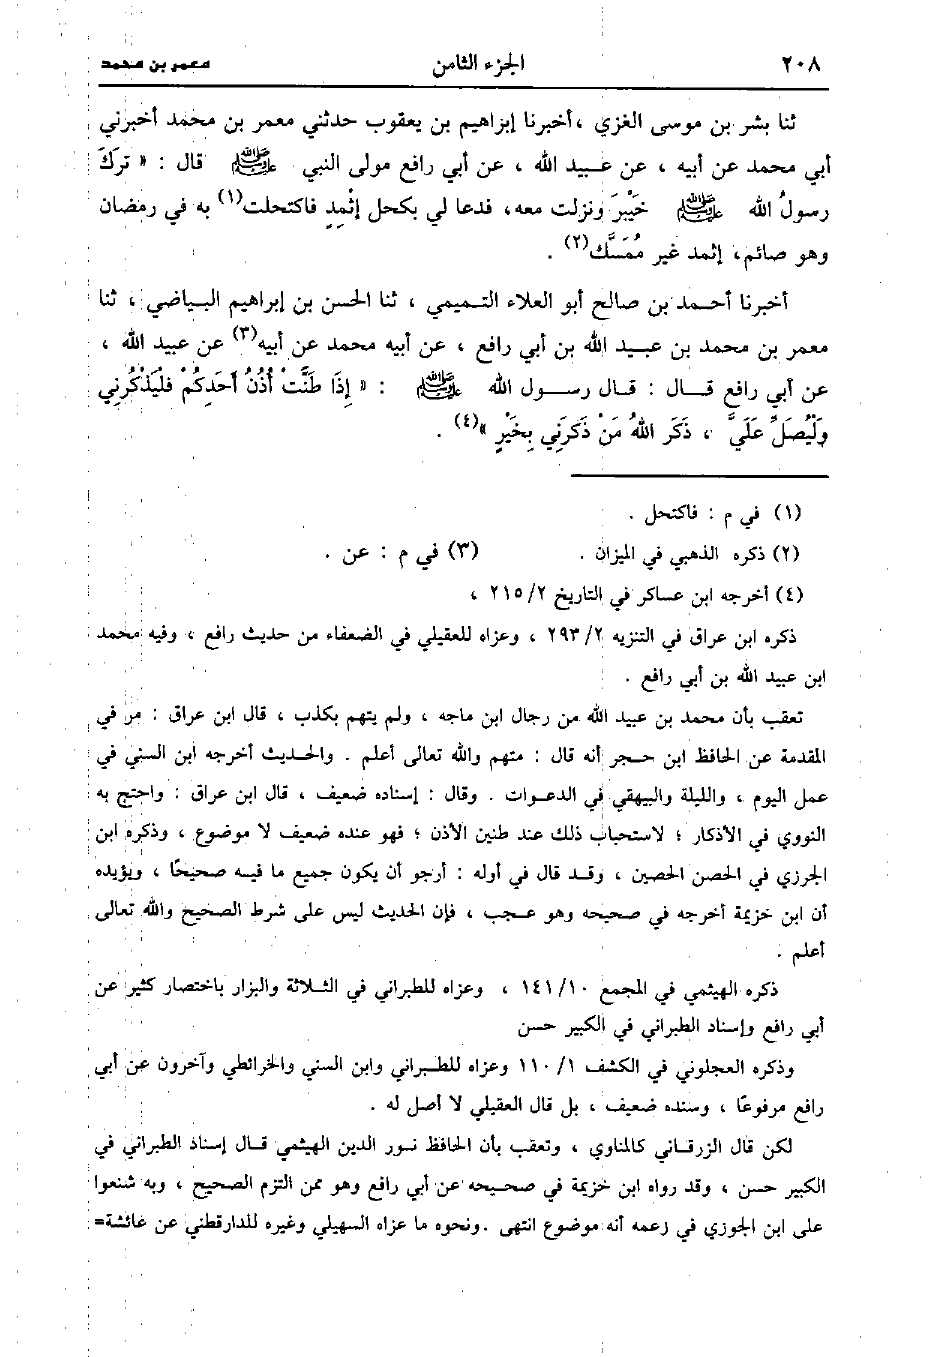 ٢٠٨ الجزء الثامن معمر بن محمد
ثنا بشر بن موسى الغزي ، أخبرنا إبراهيم بن يعقوب حدثني معمر بن محمد أخبرني
أبي محمد عن أبيه ، عن عبيد الله ، عن أبي رافع مولى النبي ﷺ قال : « تَرَكَ
رسولُ الله ﷺ خَيْبَرَ ونزلت معه، فدعا لي بكحل إثْمِدٍ فاكتحلت(١) به في رمضان
وهو صائم، إثمد غير مُمَسَّك(٢) .
أخبرنا أحمد بن صالح أبو العلاء التميمي ، ثنا الحسن بن إبراهيم البياضي ، ثنا
معمر بن محمد بن عبيد الله بن أبي رافع ، عن أبيه محمد عن أبيه(٣) عن عبيد الله ،
عن أبي رافع قال : قال رسول الله ﷺ : « إِذَا طَنَّتْ أُذُنُ أَحَدِكُمْ فَلْيَذْكُرْنِي
وَلْيُصَلِّ عَلَيَّ ، ذَكَرَ اللهُ مَنْ ذَكَرَنِي بِخَيْرٍ »(٤) .
(١) في م : فاكتحل .
(٢) ذكره الذهبي في الميزان . (٣) في م : عن .
(٤) أخرجه ابن عساكر في التاريخ ٢/ ٢١٥ ،
ذكره ابن عراق في التنزيه ٢/ ٢٩٣ ، وعزاه للعقيلي في الضعفاء من حديث رافع ، وفيه محمد
ابن عبيد الله بن أبي رافع .
تعقب بأن محمد بن عبيد الله من رجال ابن ماجه ، ولم يتهم بكذب ، قال ابن عراق : مر في
المقدمة عن الحافظ ابن حجر أنه قال : متهم والله تعالى أعلم . والحديث أخرجه ابن السني في
عمل اليوم ، والليلة والبيهقي في الدعوات . وقال : إسناده ضعيف ، قال ابن عراق : واحتج به
النووي في الأذكار ؛ لاستحباب ذلك عند طنين الأذن ؛ فهو عنده ضعيف لا موضوع ، وذكره ابن
الجزري في الحصن الحصين ، وقد قال في أوله : أرجو أن يكون جميع ما فيه صحيحًا ، ويؤيده
أن ابن خزيمة أخرجه في صحيحه وهو عجب ، فإن الحديث ليس على شرط الصحيح والله تعالى
أعلم .
ذكره الهيثمي في المجمع ١٠/ ١٤١ ، وعزاه للطبراني في الثلاثة والبزار باختصار كثير عن
أبي رافع وإسناد الطبراني في الكبير حسن
وذكره العجلوني في الكشف ١/ ١١٠ وعزاه للطبراني وابن السني والخرائطي وآخرون عن أبي
رافع مرفوعًا ، وسنده ضعيف ، بل قال العقيلي لا أصل له .
لكن قال الزرقاني كالمناوي ، وتعقب بأن الحافظ نور الدين الهيثمي قال إسناد الطبراني في
الكبير حسن ، وقد رواه ابن خزيمة في صحيحه عن أبي رافع وهو ممن التزم الصحيح ، وبه شنعوا
على ابن الجوزي في زعمه أنه موضوع انتهى .ونحوه ما عزاه السهيلي وغيره للدارقطني عن عائشة=